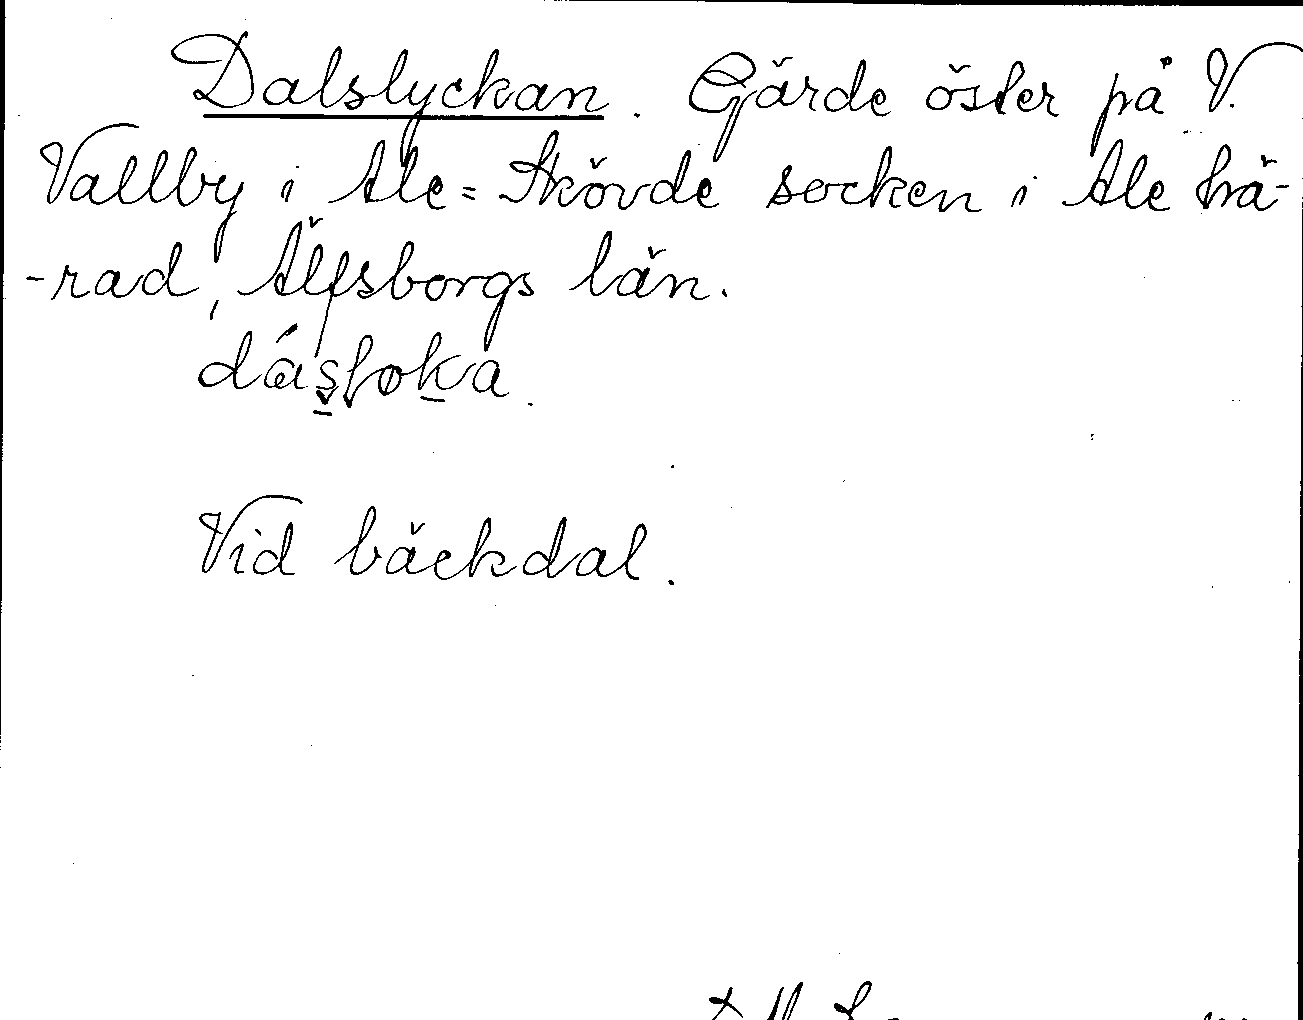 Dalslyckan. Gärde öster på V.
Vallby i Ale=Skövde socken i Ale hä-
-rad, Älfsborgs län.
dásloka.
Vid bäckdal.